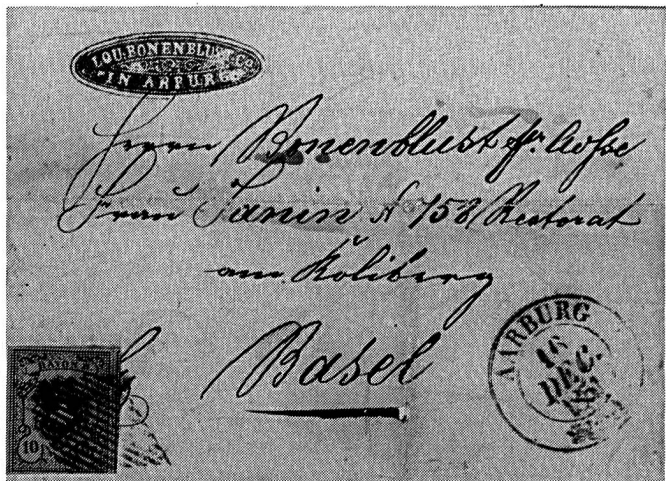 LOU. BONENBLUST & Co
IN ARBURG
Herrn Bonenblust
Frau Janin № 758 Rectorat
am Kohliberg
Basel
AARBURG
16
DEC.
RAYON II
10